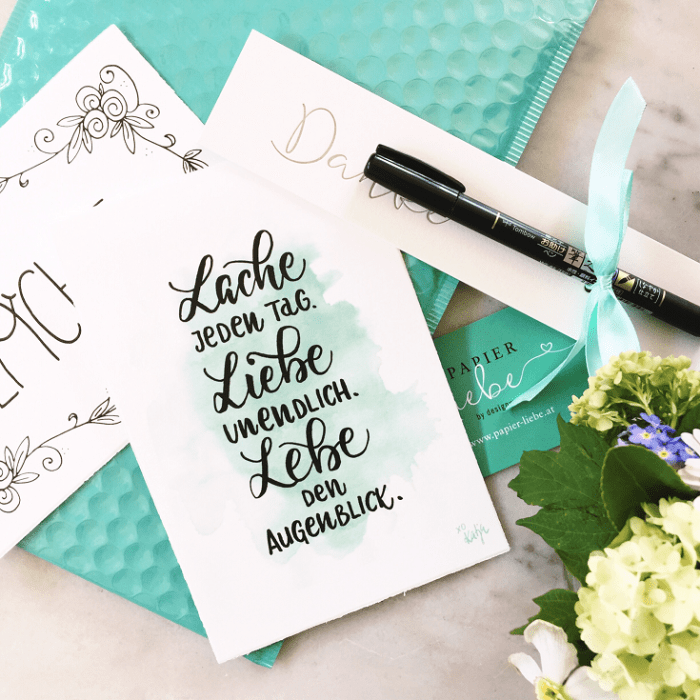 Danke
Lache
JEDEN TAG.
Liebe
UNENDLICH.
Lebe
DEN
AUGENBLICK.
xo
Katja
Tombow
PAPIER
liebe
www.papier-liebe.at